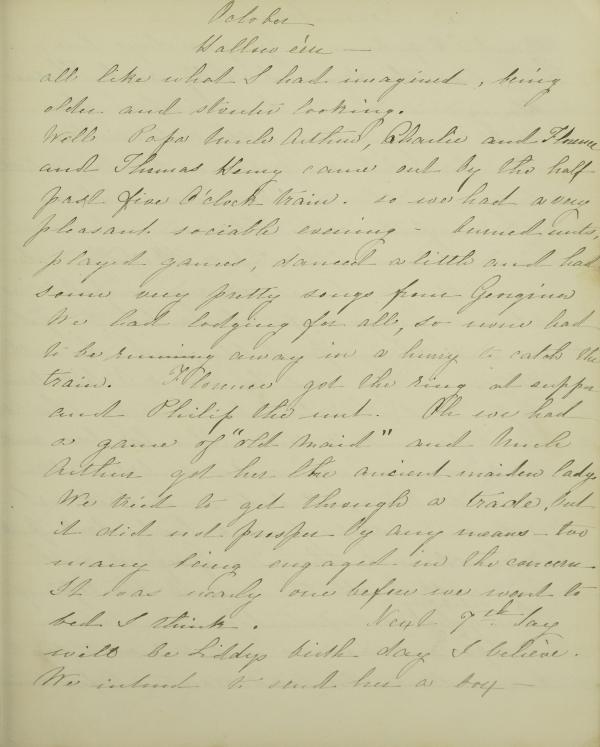 October
Hallow e'en —
all like what I had imagined, being
older and stouter looking.
Well Papa Uncle Arthur, Charlie and Florence
and Thomas Henry came out by the half
past five O'clock train. so we had a very
pleasant sociable evening - burned nuts,
played games, danced a little and had
some very pretty songs from Georgina
We had lodging for all, so none had
to be running away in a hurry to catch the
train. Florence got the ring at supper
and Philip the nut. Oh we had
a game of "old maid" and Uncle
Arthur got her the ancient maiden lady.
We tried to get through a trade, but
it did not prosper by any means - too
many being engaged in the concern
It was nearly one before we went to
bed I think. Next 7th day
will be Liddy's birth day I believe.
We intend to send her a box —